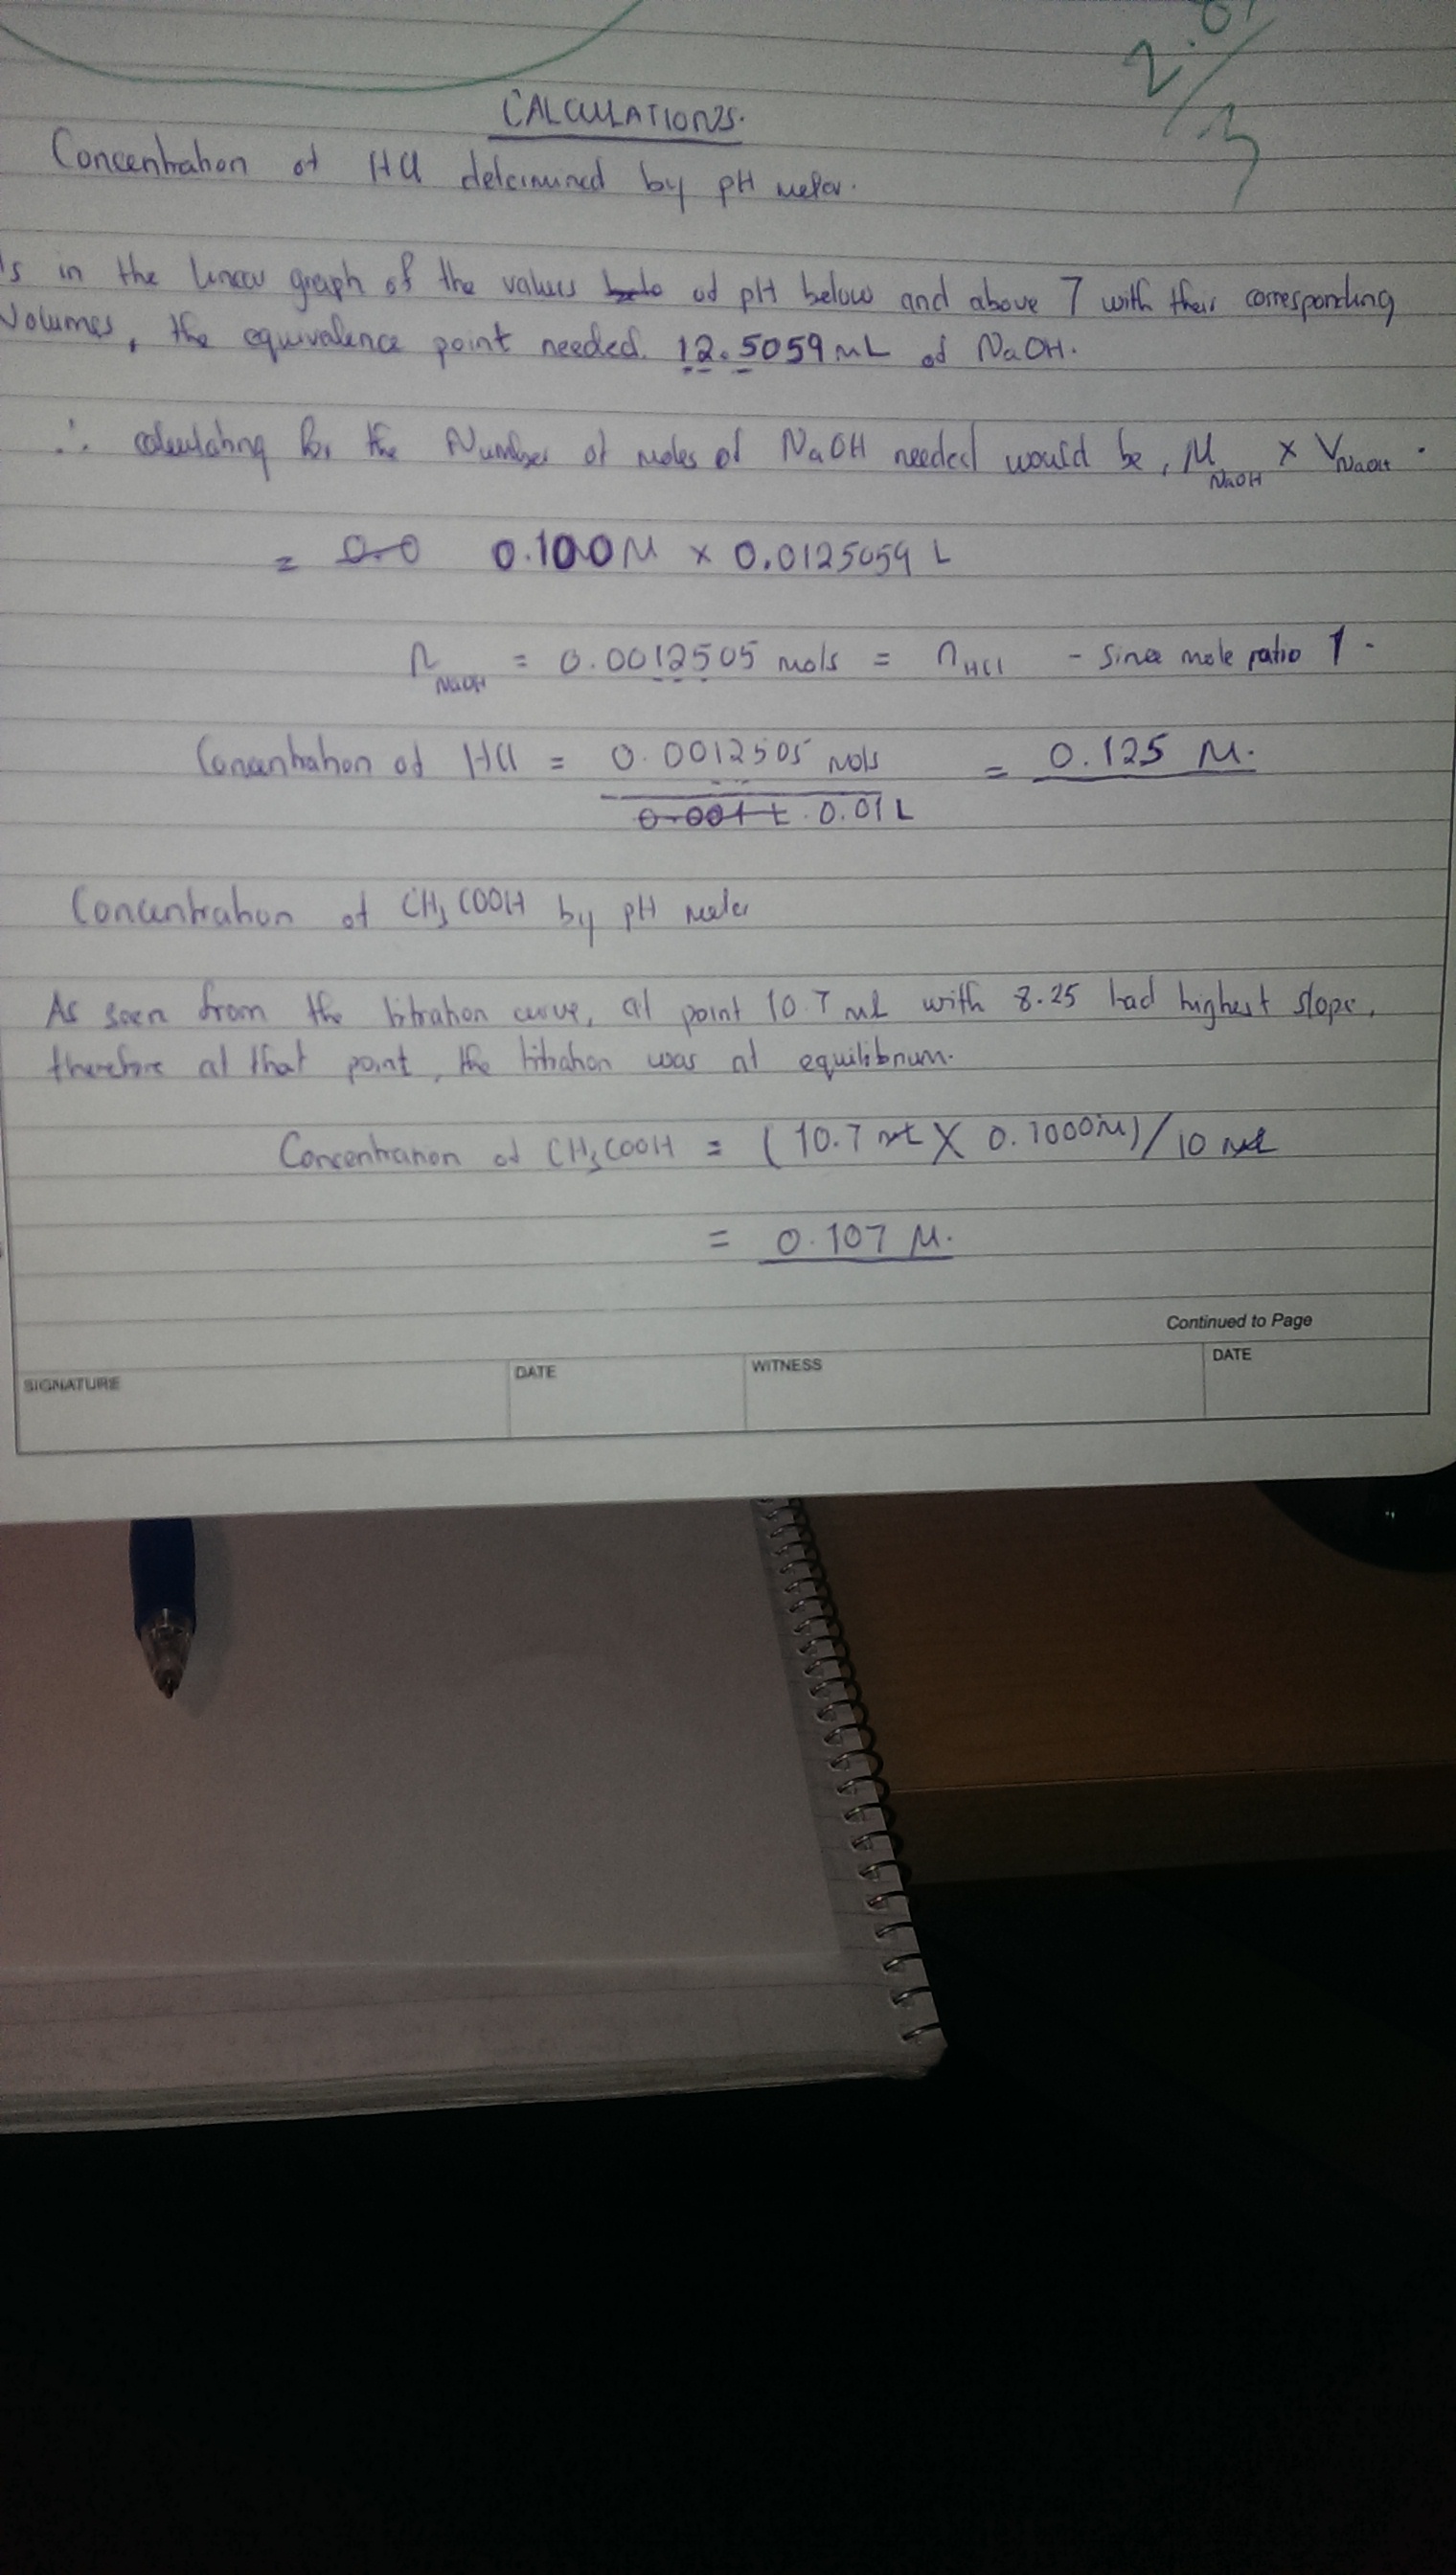 CALCULATIONS.
Concentration of HCl determined by pH meter.
s in the linear graph of the values of pH below and above 7 with their corresponding
Volumes, the equivalence point needed 12.5059 mL of NaOH.
∴ calculating for the Number of moles of NaOH needed would be, M NaOH × V NaOH .
= 0.0 0.100 M × 0.0125059 L
n NaOH = 0.0012505 mols = n HCl - since mole ratio 1 .
Concentration of HCl = 0.0012505 mols = 0.125 M.
0.001 L . 0.01 L
Concentration of CH3COOH by pH meter
As seen from the titration curve, at point 10.7 mL with 8.25 had highest slope,
therefore at that point, the titration was at equilibrium.
Concentration of CH3COOH = (10.7 mL X 0.1000M)/10 mL
= 0.107 M.
Continued to Page
SIGNATURE DATE WITNESS DATE